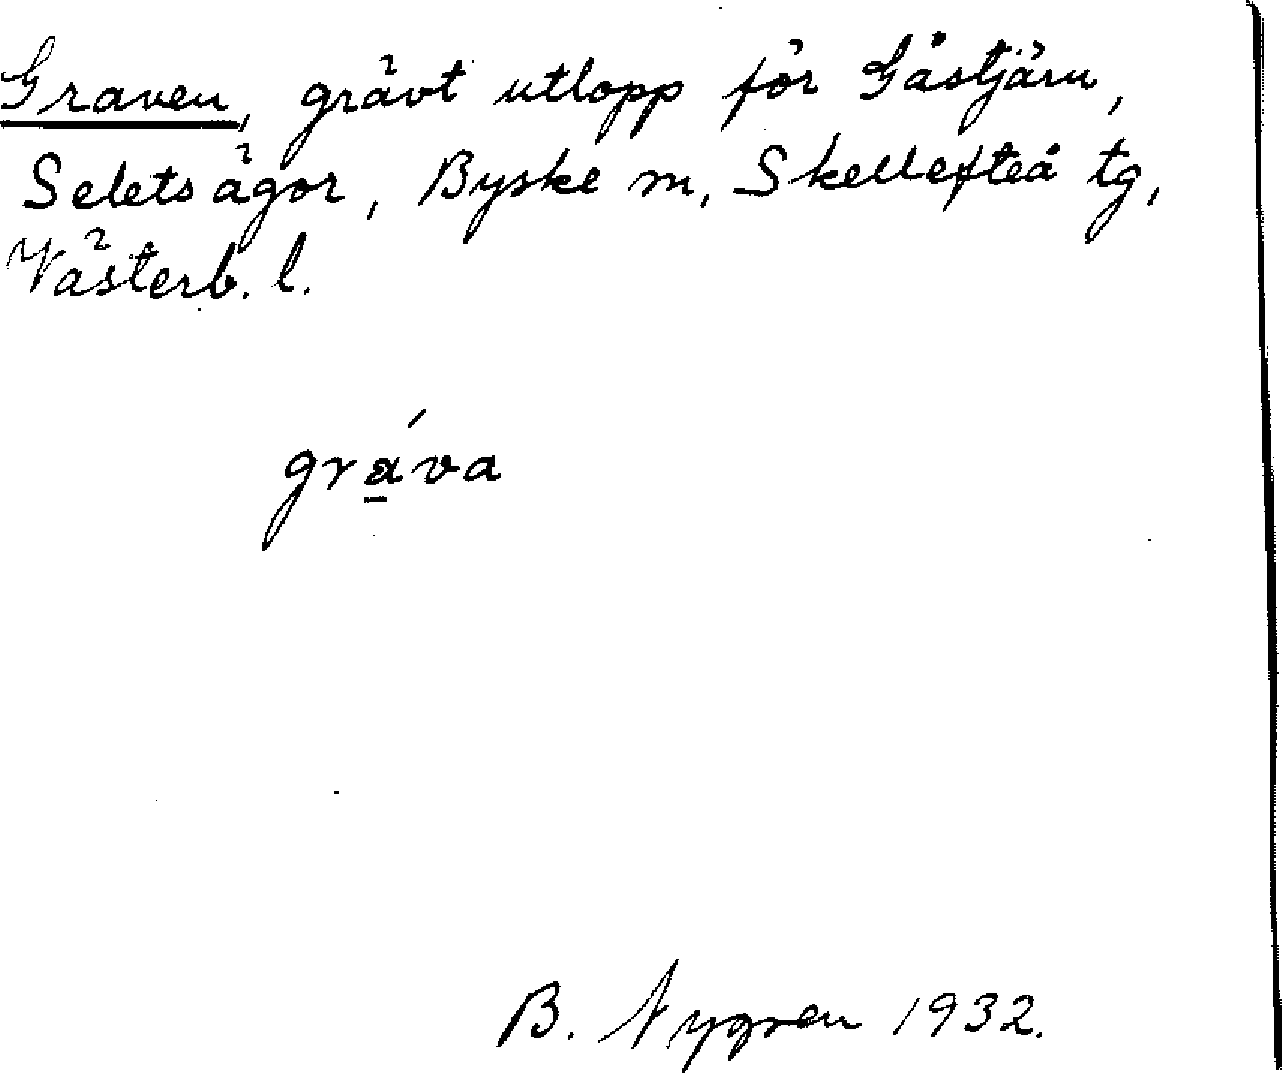 Graven, grävt utlopp för Gåstjärn,
Selets ägor, Byske m, Skellefteå tg,
Västerb. l.
gra̲´va
B. Nygren 1932.